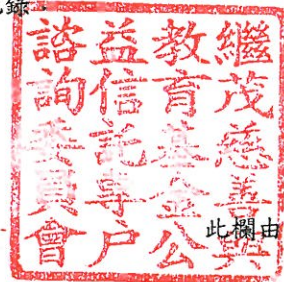 錄
繼茂慈善與
教育基金公
益信託專户
諮詢委員會
此欄由